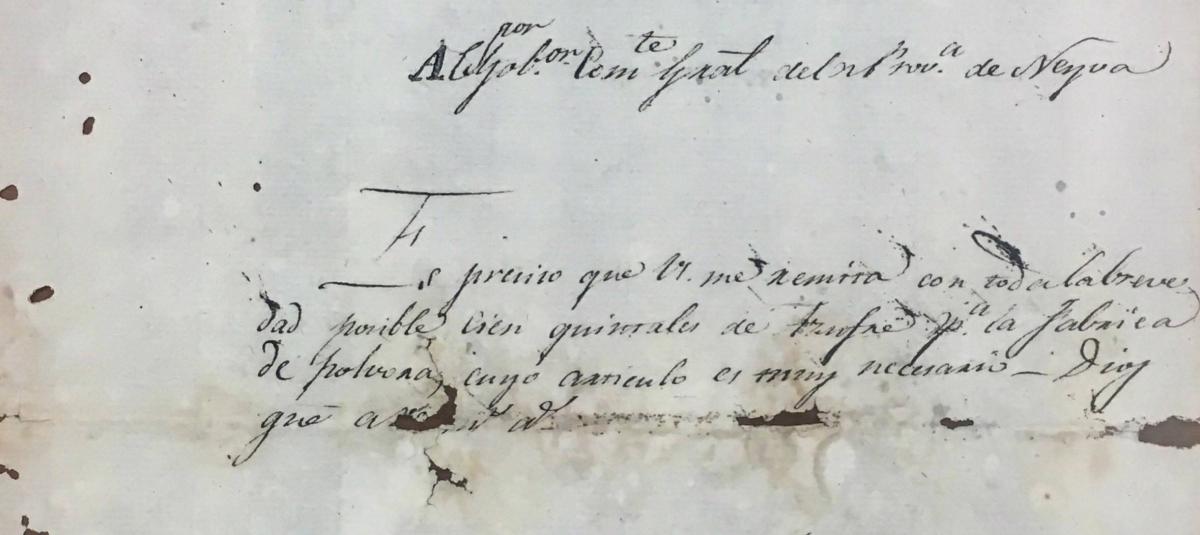 Al Sor Gobor Comte Gral dela Prova de Neyva
Es preciso que V. me remita con toda labreve
dad posible, cien quintales de azufre pa la Fabrica
de polvora, cuyo articulo es muy necesario – Dios
gue a